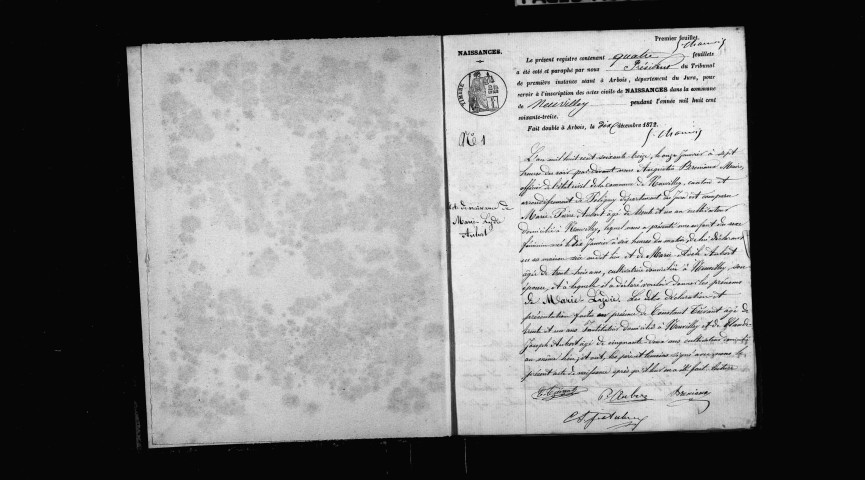 Premier feuillet.
NAISSANCES.
Le présent registre contenant quatre feuillets
a été coté et paraphé par nous Président du Tribunal
de première instance séant à Arbois, département du Jura, pour
servir à l'inscription des actes civils de NAISSANCES dans la commune
de Neuvilley pendant l'année mil huit cent
soixante-treize.
Fait double à Arbois, le dix décembre 1872.
No 1
L'an mil huit cent soixante treize, le onze Janvier à sept
heures du soir, par devant nous Augustin Maire,
officier de l'état civil de la commune de Neuvilley, canton et
arrondissement de Poligny département du Jura est comparu
Marie Pierre Aubert âgé de trente et un an cultivateur
domicilié à Neuvilley, lequel nous a présenté un enfant du sexe
féminin né le dix Janvier à six heures du matin, de lui déclarant
en sa maison sise audit lieu et de Marie Aubert
âgée de trente ans, cultivatrice domiciliée à Neuvilley, son
épouse, et à laquelle il a déclaré vouloir donner les prénoms
de Marie Lydie. Les dites déclaration et
présentation faites en présence de Constant âgé de
trente et un ans Instituteur domicilié à Neuvilley et de Claude
Joseph Aubert âgé de cinquante deux ans cultivateur
au même lieu, et ont, les père et témoins signé avec nous le
présent acte de naissance après qu'il leur en a été fait lecture
Acte de naissance de
Marie Lydie
Aubert
P. Aubert